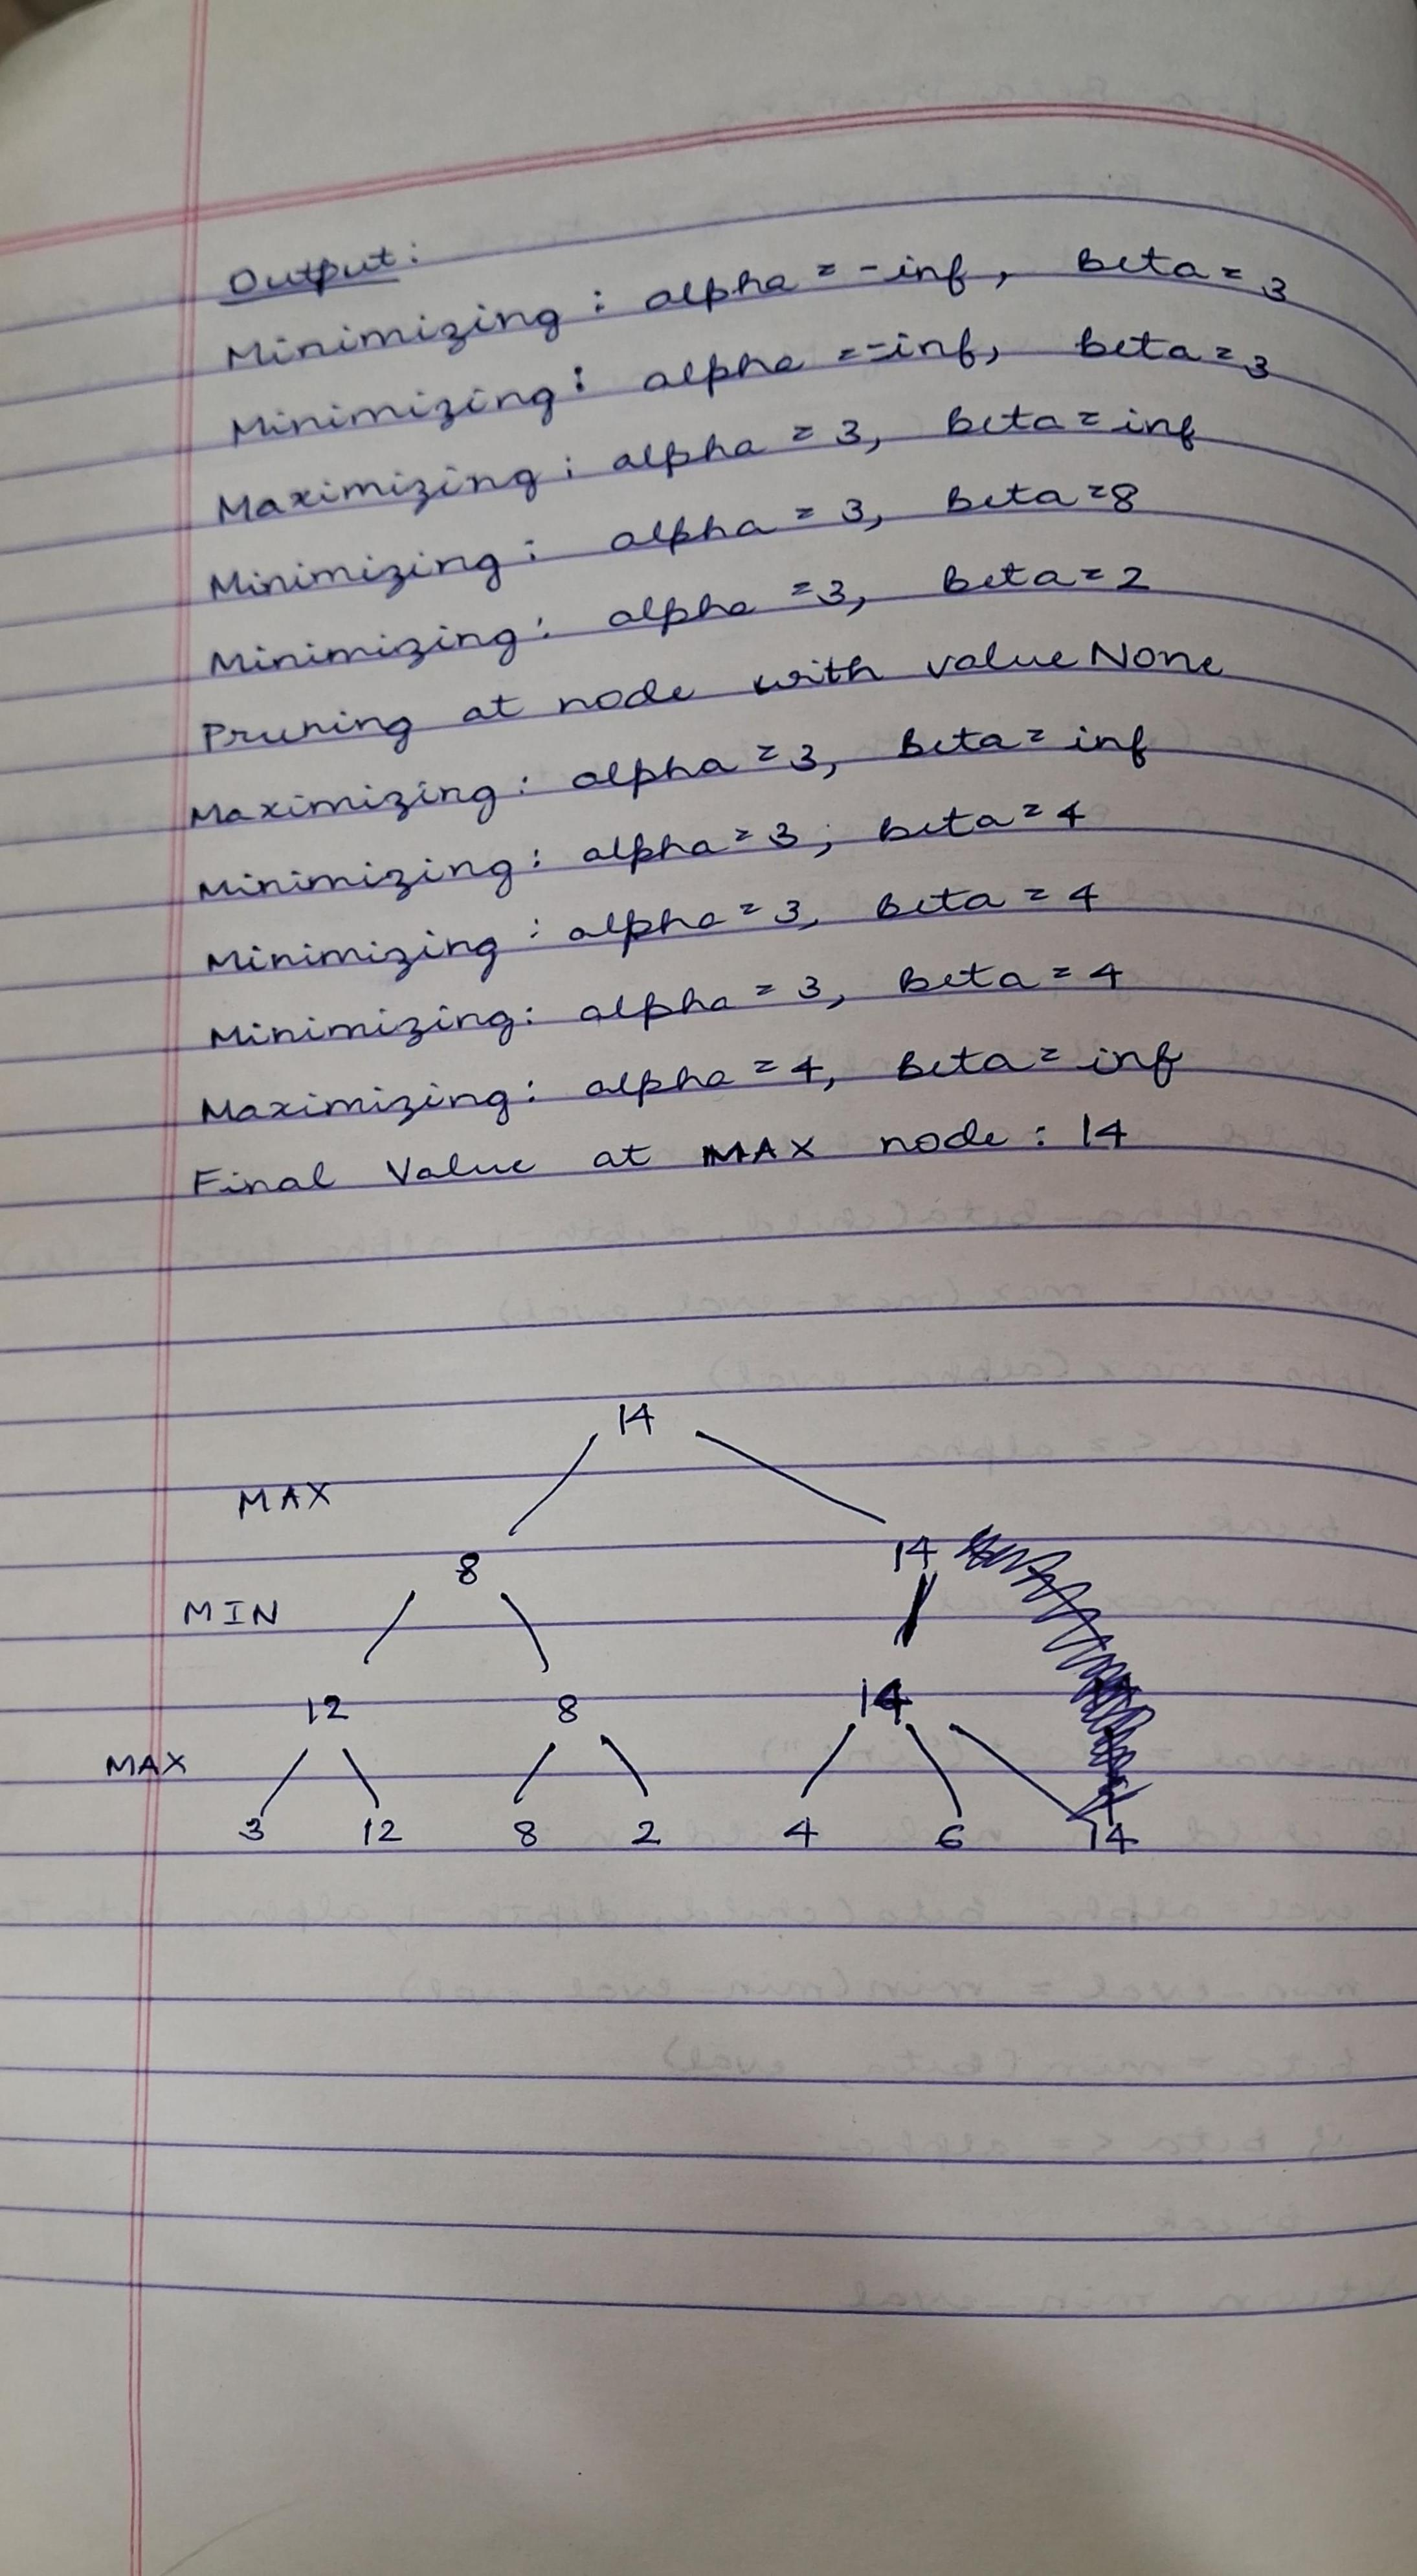 Output:
Minimizing: alpha = -inf, beta = 3
Minimizing: alpha = -inf, beta = 3
Maximizing: alpha = 3, beta = inf
Minimizing: alpha = 3, beta = 8
Minimizing: alpha = 3, beta = 2
Pruning at node with value None
Maximizing: alpha = 3, beta = inf
Minimizing: alpha = 3, beta = 4
Minimizing: alpha = 3, beta = 4
Minimizing: alpha = 3, beta = 4
Maximizing: alpha = 4, beta = inf
Final Value at MAX node: 14
14
MAX
8 14
MIN
12 8 14
MAX
3 12 8 2 4 6 14